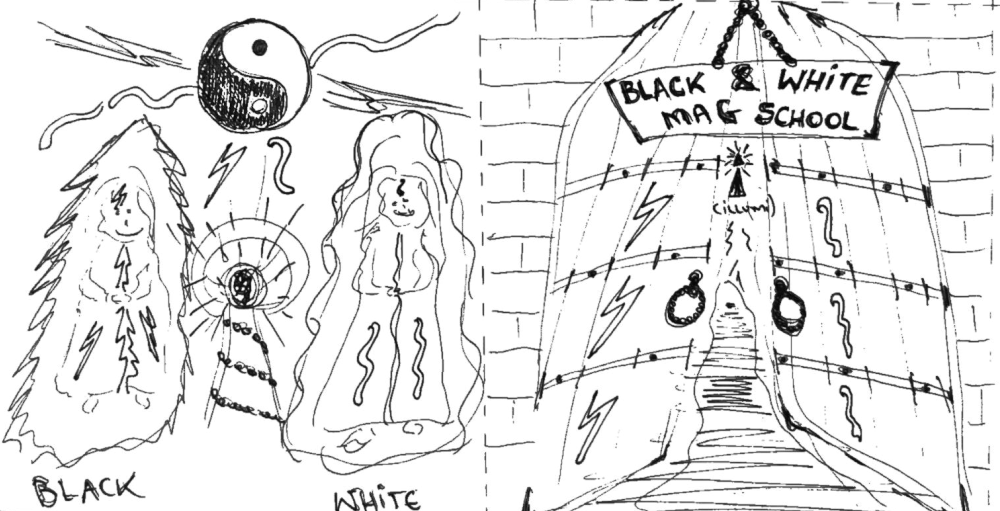 BLACK
WHITE
BLACK & WHITE
MAG SCHOOL
(illumi)